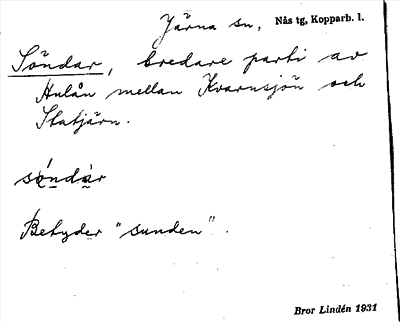 Järna sn, Nås tg, Kopparb. l.
Söndar, bredare parti av
Hulån mellan Kvarnsjön och
Statjärn.
söndàr
Betyder "sunden".
Bror Lindén 1931